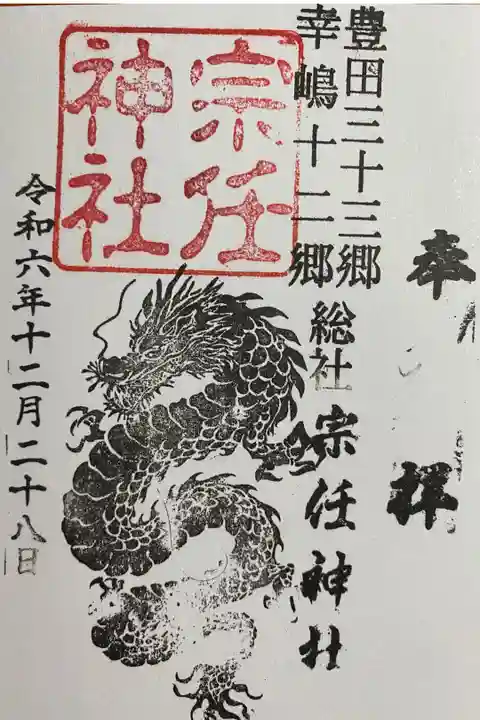 奉拝
豊田三十三郷
幸嶋十二郷
総社宗任神社
宗任
神社
令和六年十二月二十八日